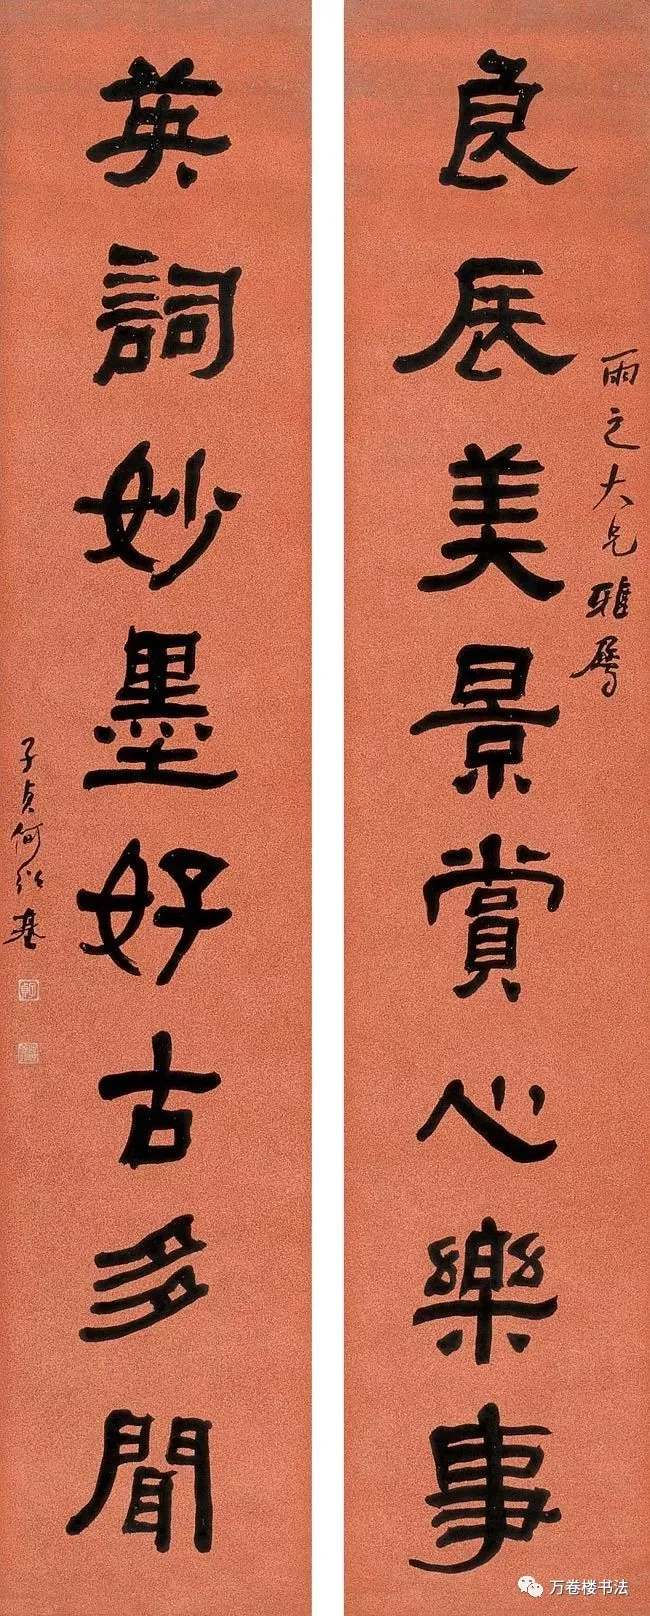 良辰美景賞心樂事
雨之大兄雅屬
英詞妙墨好古多聞
子貞何紹基
万卷楼书法